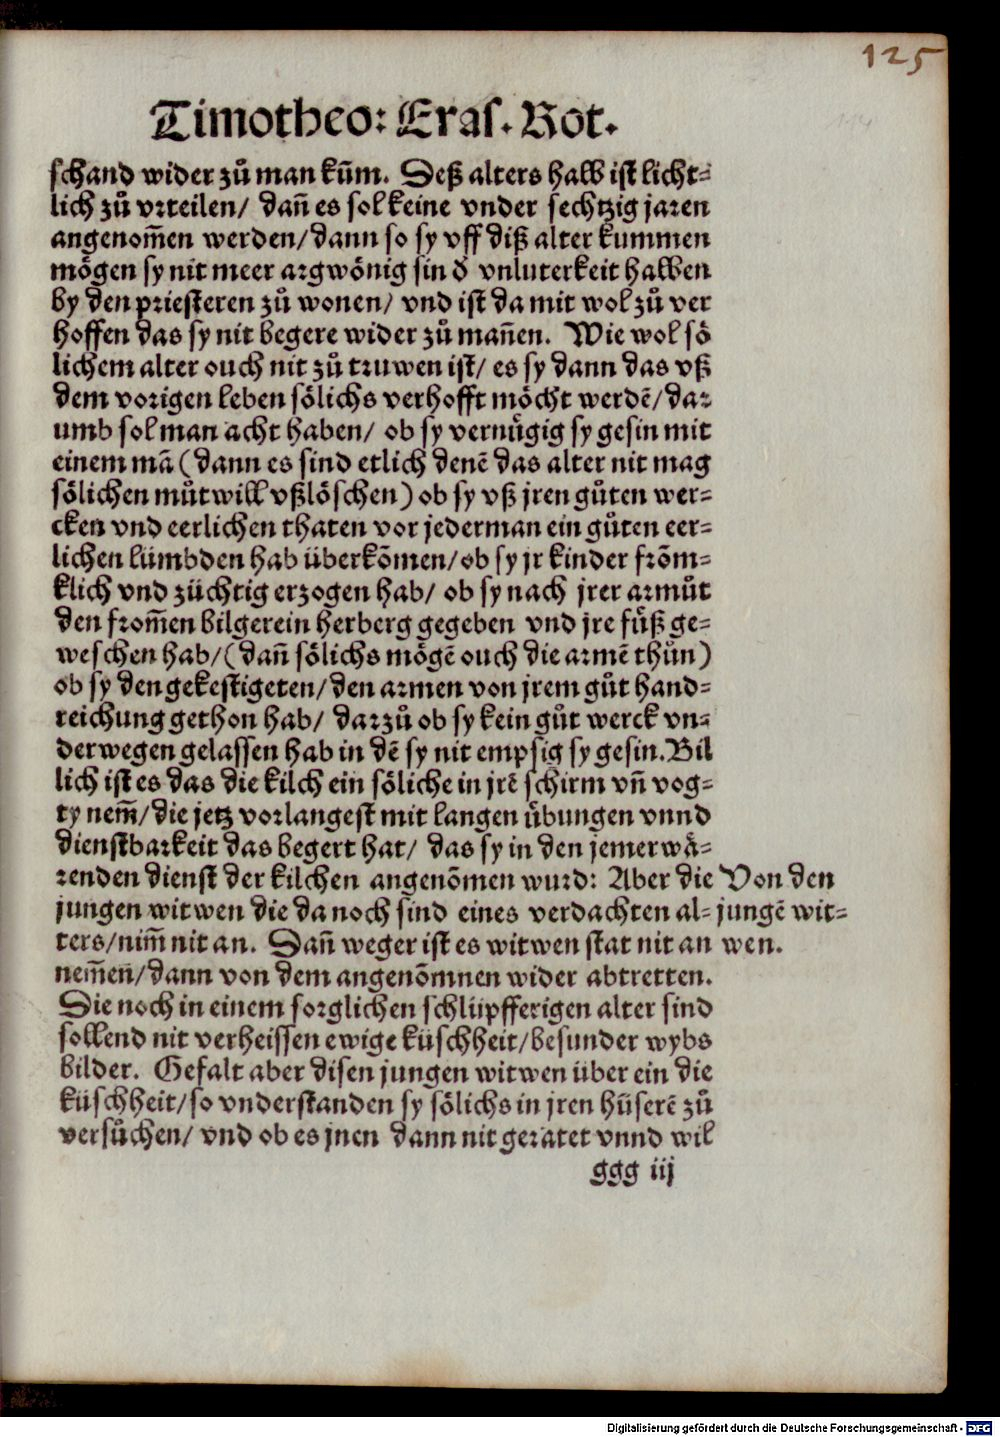 125
Timotheo: Eras. Rot.
schand wider zů man kūm. Deß alters halb ist licht⸗
lich zů vrteilen/ dañ es sol keine vnder sechtzig jaren
angenom̃en werden/dann so sy vff diß alter kummen
mögen sy nit meer argwönig sin đ vnluterkeit halben
by den priesteren zů wonen/ vnd ist da mit wol zů ver
hoffen das sy nit begere wider zů mañen. Wie wol sö
lichem alter ouch nit zů truwen ist/ es sy dann das vß
dem vorigen leben sölichs verhofft möcht werdē/dar⸗
umb sol man acht haben/ ob sy vernůgig sy gesin mit
einem mā (dann es sind etlich denē das alter nit mag
sölichen můtwill vßlöschen) ob sy vß jren gůten wer⸗
cken vnd eerlichen thaten vor jederman ein gůten eer⸗
lichen lümbden hab überkōmen/ob sy jr kinder frōm⸗
klich vnd züchtig erzogen hab/ ob sy nach jrer armůt
den from̃en bilgerein herberg gegeben vnd jre fůß ge⸗
weschen hab/(dañ sölichs mögē ouch die armē thůn)
ob sy den gekestigeten/den armen von jrem gůt hand⸗
reichung gethon hab/ darzů ob sy kein gůt werck vn⸗
derwegen gelassen hab in dē sy nit empsig sy gesin. Bil
lich ist es das die kilch ein söliche in jrē schirm vñ vog⸗
ty nem̃/die jetz vorlangest mit langen übungen vnnd
dienstbarkeit das begert hat/ das sy in den jemerwä⸗
renden dienst der kilchen angenōmen wurd: Aber die
jungen witwen die da noch sind eines verdachten al⸗
ters/nim̃ nit an. Dañ weger ist es witwen stat nit an
nem̃en/dann von dem angenōmnen wider abtretten.
Die noch in einem sorglichen schlüpfferigen alter sind
sollend nit verheissen ewige küschheit/besunder wybs
bilder. Gefalt aber disen jungen witwen über ein die
küschheit/so vnderstanden sy sölichs in jren hüserē zů
versůchen/ vnd ob es jnen dann nit geratet vnnd wil
Von den
jungē wit⸗
wen.
ggg iij
Digitalisierung gefördert durch die Deutsche Forschungsgemeinschaft - DFG